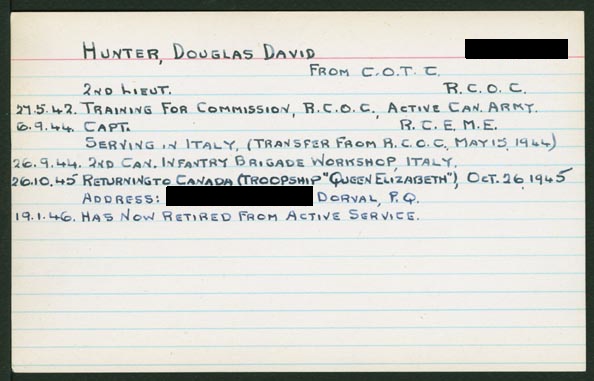 HUNTER, DOUGLAS DAVID
FROM C.O.T.C.
2ND LIEUT. R.C.O.C.
27.5.42. TRAINING FOR COMMISSION, R.C.O.C., ACTIVE CAN. ARMY.
6.9.44. CAPT. R.C.E.M.E.
SERVING IN ITALY, (TRANSFER FROM R.C.O.C., MAY 15, 1944)
26.9.44. 2ND CAN. INFANTRY BRIGADE WORKSHOP ITALY.
26.10.45 RETURNING TO CANADA (TROOPSHIP "QUEEN ELIZABETH"), OCT. 26, 1945
ADDRESS: DORVAL, P.Q.
19.1.46. HAS NOW RETIRED FROM ACTIVE SERVICE.